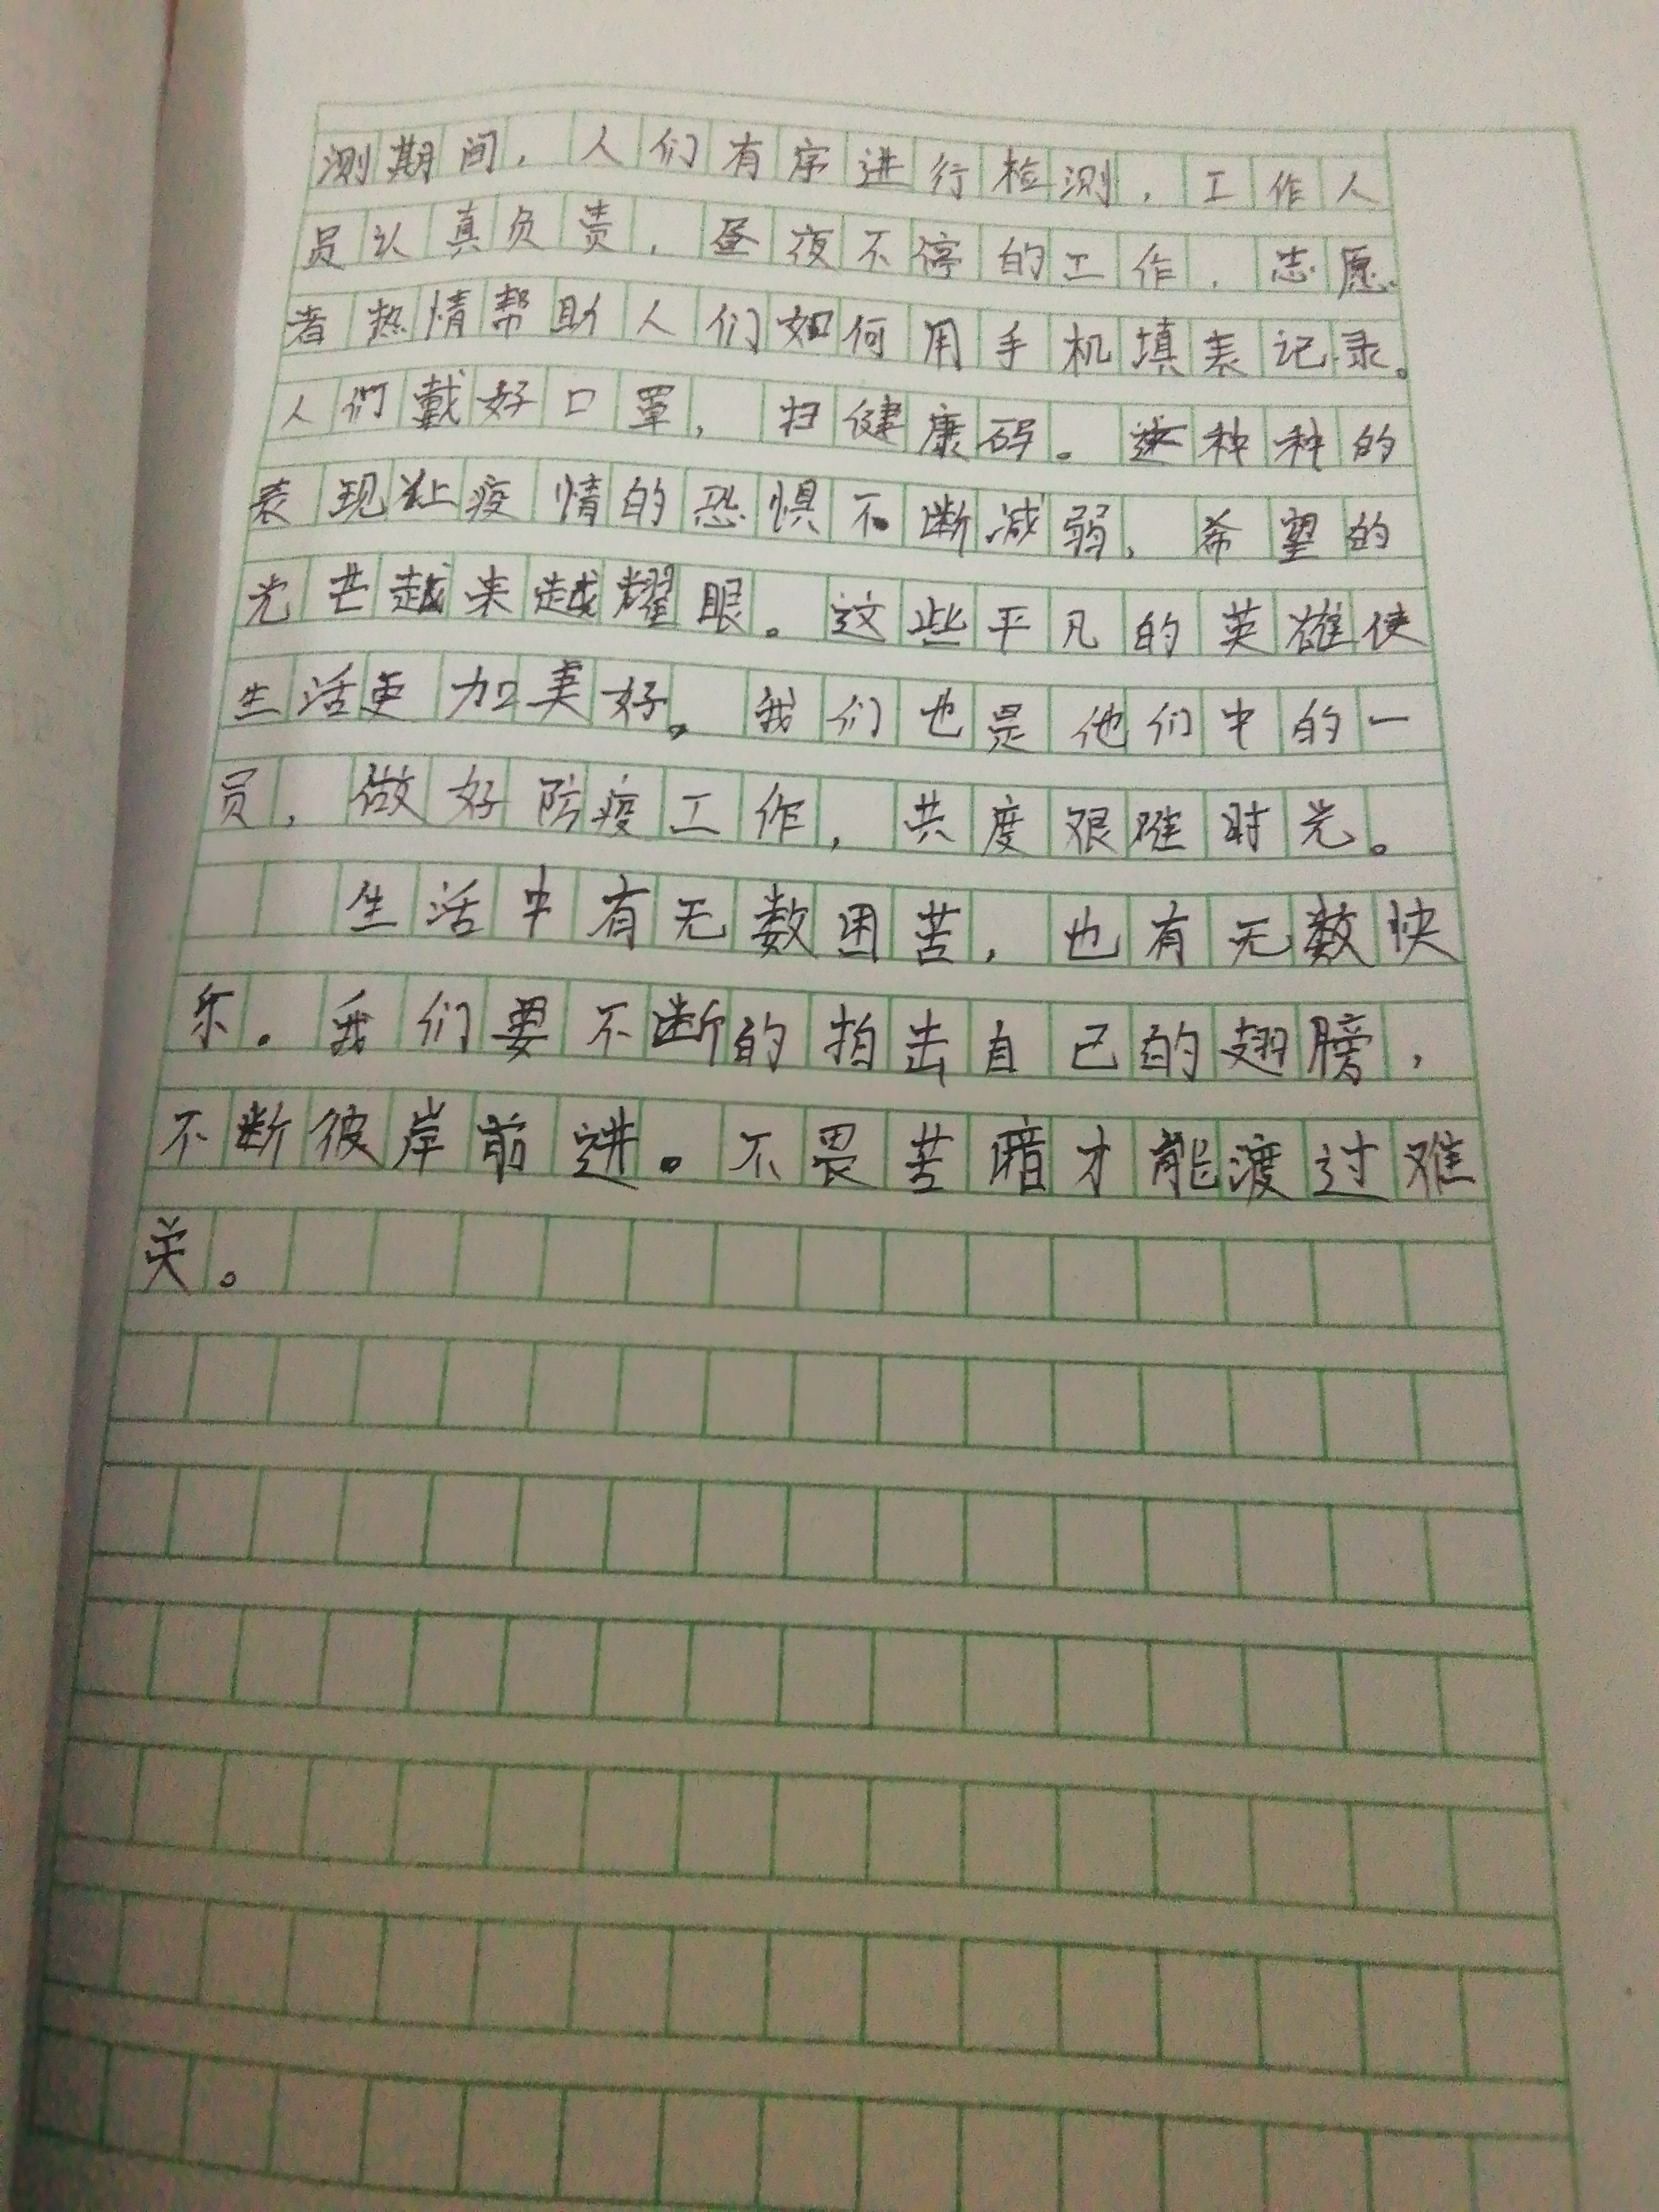 测期间，人们有序进行检测，工作人
员认真负责，昼夜不停的工作，志愿
者热情帮助人们如何用手机填表记录。
人们戴好口罩，扫健康码。这种种的
表现让疫情的恐惧不断减弱，希望的
光芒越来越耀眼。这些平凡的英雄使
生活更加美好。我们也是他们中的一
员，做好防疫工作，共度艰难时光。
生活中有无数困苦，也有无数快
乐。我们要不断的拍击自己的翅膀，
不断彼岸前进。不畏苦暗才能渡过难
关。